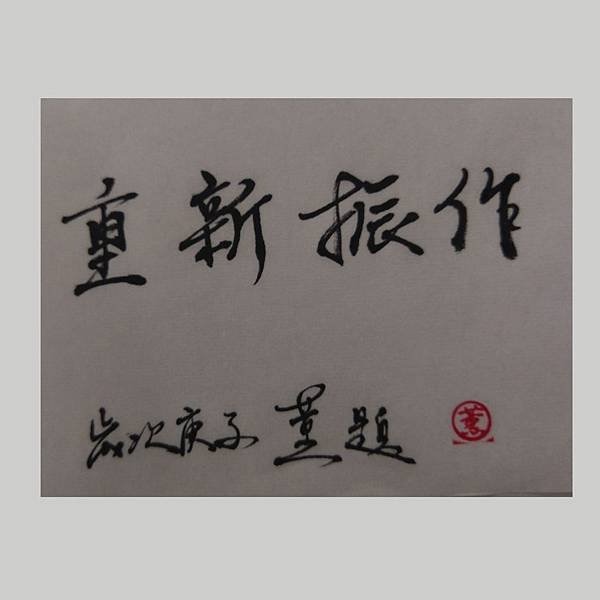 重新振作
歲次庚子 蕙題
蕙